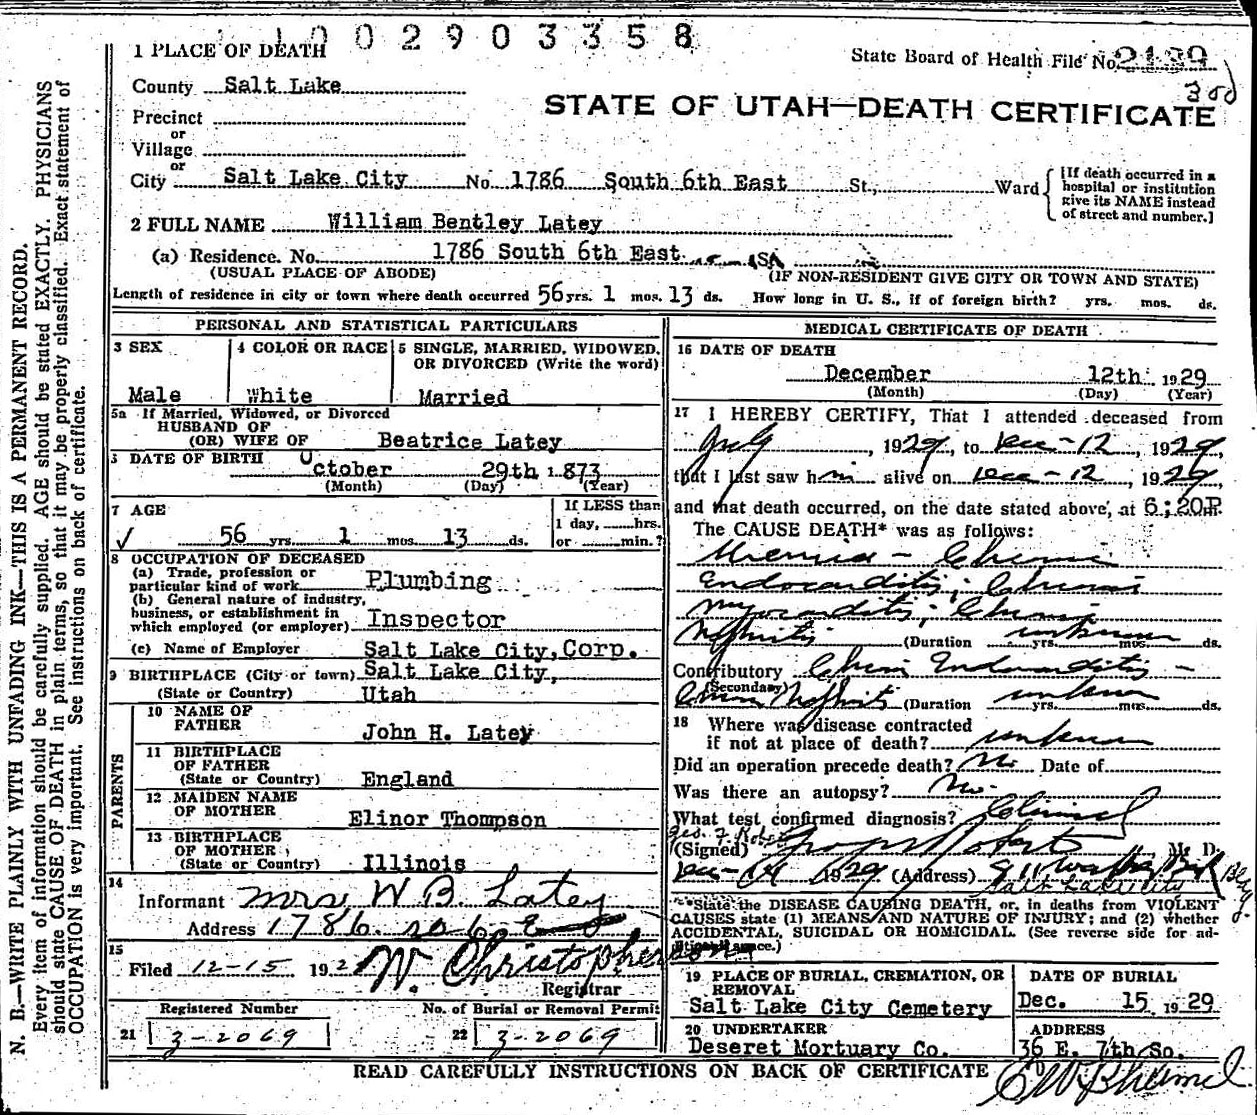 1002903358
1 PLACE OF DEATH
State Board of Health File No. 2139
County Salt Lake
STATE OF UTAH—DEATH CERTIFICATE
Precinct
or
Village
or
City Salt Lake City No. 1786 South 6th East St., Ward
[If death occurred in a hospital or institution give its NAME instead of street and number.]
2 FULL NAME William Bentley Latey
(a) Residence. No. 1786 South 6th East
(USUAL PLACE OF ABODE) (IF NON-RESIDENT GIVE CITY OR TOWN AND STATE)
Length of residence in city or town where death occurred 56 yrs. 1 mos. 13 ds. How long in U. S., if of foreign birth? yrs. mos. ds.
PERSONAL AND STATISTICAL PARTICULARS
3 SEX
Male
4 COLOR OR RACE
White
5 SINGLE, MARRIED, WIDOWED, OR DIVORCED (Write the word)
Married
5a If Married, Widowed, or Divorced
HUSBAND OF
(OR) WIFE OF Beatrice Latey
DATE OF BIRTH October 29th 1873
(Month) (Day) (Year)
7 AGE
56 yrs. 1 mos. 13 ds.
If LESS than
1 day, hrs.
or min.?
8 OCCUPATION OF DECEASED
(a) Trade, profession or particular kind of work Plumbing
(b) General nature of industry, business, or establishment in which employed (or employer) Inspector
(c) Name of Employer Salt Lake City, Corp.
9 BIRTHPLACE (City or town) Salt Lake City,
(State or Country) Utah
PARENTS
10 NAME OF FATHER John H. Latey
11 BIRTHPLACE OF FATHER
(State or Country) England
12 MAIDEN NAME OF MOTHER Elinor Thompson
13 BIRTHPLACE OF MOTHER
(State or Country) Illinois
14
Informant Mrs W B Latey
Address 1786 so 6 E
15
Filed 12-15 192 W. Christopherson
Registrar
Registered Number
21 3-2069
No. of Burial or Removal Permit
22 3-2069
MEDICAL CERTIFICATE OF DEATH
16 DATE OF DEATH
December 12th 1929
(Month) (Day) (Year)
17 I HEREBY CERTIFY, That I attended deceased from
July, 1929, to Dec-12 1929,
that I last saw him alive on Dec-12, 1929,
and that death occurred, on the date stated above, at 6:20P.
The CAUSE DEATH* was as follows:
Uremia - Chronic
Endocarditis; Chronic
Myocarditis; Chronic
Nephritis (Duration unknown yrs. mos. ds.
Contributory Chronic Endocarditis -
(Secondary) Chronic Nephritis (Duration unknown yrs. mos. ds.
18 Where was disease contracted
if not at place of death? unknown
Did an operation precede death? No Date of
Was there an autopsy? No.
What test confirmed diagnosis? Clinical
(Signed) M. D.
1929 (Address) 911
Salt Lake City
*State the DISEASE CAUSING DEATH, or, in deaths from VIOLENT
CAUSES state (1) MEANS AND NATURE OF INJURY; and (2) whether
ACCIDENTAL, SUICIDAL OR HOMICIDAL. (See reverse side for ad-
ditional space.)
19 PLACE OF BURIAL, CREMATION, OR REMOVAL
Salt Lake City Cemetery
DATE OF BURIAL
Dec. 15 1929
20 UNDERTAKER
Deseret Mortuary Co.
ADDRESS
36 E. 7th So.
READ CAREFULLY INSTRUCTIONS ON BACK OF CERTIFICATE
N. B.—WRITE PLAINLY WITH UNFADING INK—THIS IS A PERMANENT RECORD.
Every item of information should be carefully supplied. AGE should be stated EXACTLY. PHYSICIANS
should state CAUSE OF DEATH in plain terms, so that it may be properly classified. Exact statement of
OCCUPATION is very important. See instructions on back of certificate.